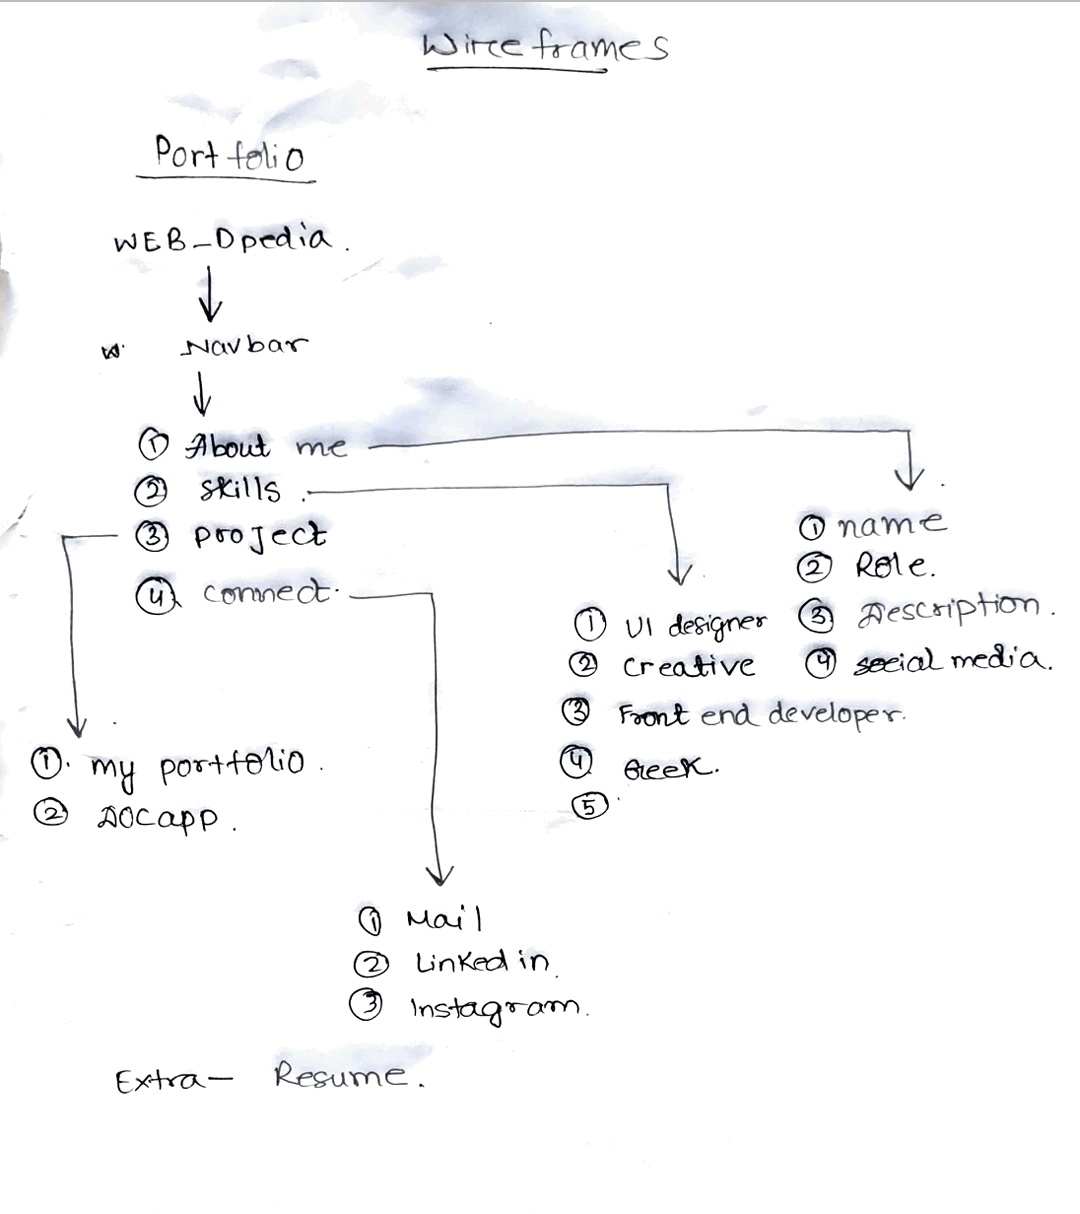 Wireframes
Portfolio
WEB-Dpedia.
Navbar
① About me
② skills
③ project
④ connect
① name
② Role.
③ Description.
④ social media.
① UI designer
② creative
③ Front end developer.
④ Geek.
⑤
①. my portfolio.
② DOCapp.
① Mail
② Linkedin.
③ Instagram.
Extra- Resume.